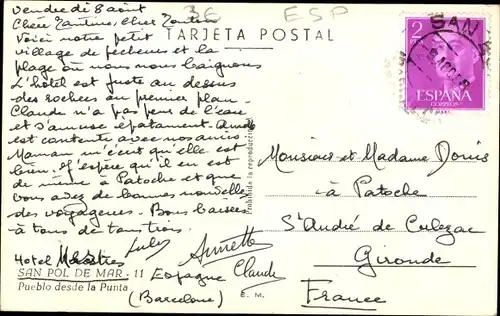 BE ESP
TARJETA POSTAL
Vendredi 8 août
Chère Tantine, Cher Tonton
Voici notre petit
village de pêcheurs et la
plage où nous nous baignons
L'hôtel est juste au dessus
des rochers au premier plan.
Claude n'a pas peur de l'eau
et s'amuse épatamment.
est contente avec nos amis
Maman m'écrit qu'elle est
bien. J'espère qu'il en est
de même à Patoche et que
vous avez de bonnes nouvelles
des voyageurs. Bons baisers
à tous de tous trois.
Annette
Claude
Hotel
SAN POL DE MAR - 11
Pueblo desde la Punta
Espagne
(Barcelone)
E. M.
Prohibida la reproducción
2
ESPAÑA
CORREOS
SAN
Monsieur et Madame
à Patoche
St André de Cubzac
Gironde
France